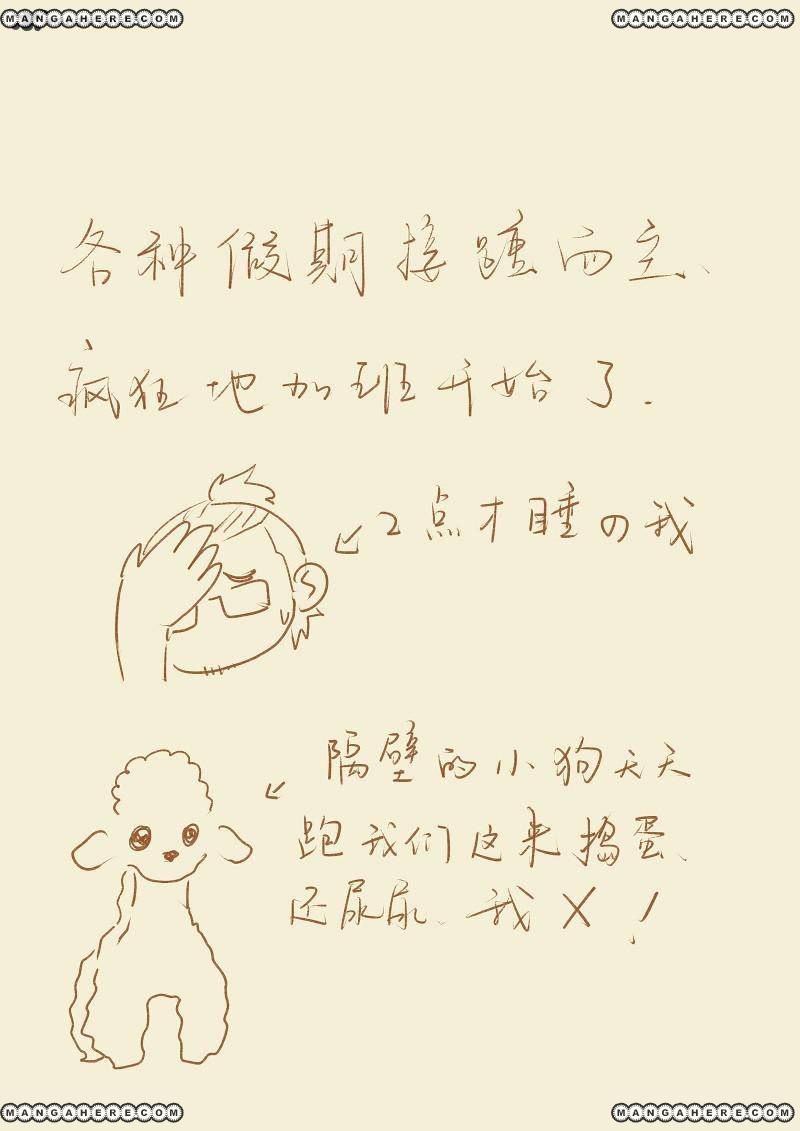 MANGAHERE.COM MANGAHERE.COM
各种假期接踵而至、
疯狂地加班开始了.
2点才睡の我
隔壁的小狗天天
跑我们这来捣蛋、
还尿尿、我X!
MANGAHERE.COM MANGAHERE.COM